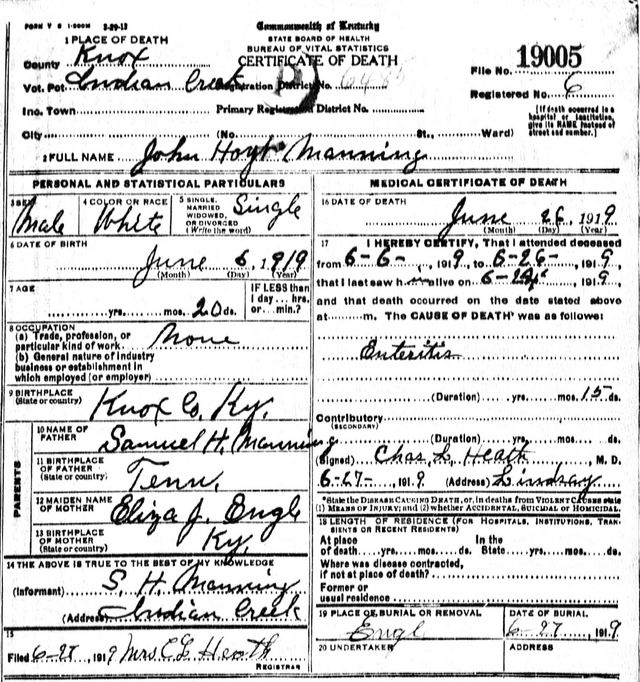 FORM V S 1-500M 3-29-12
Commonwealth of Kentucky
STATE BOARD OF HEALTH
BUREAU OF VITAL STATISTICS
CERTIFICATE OF DEATH
1 PLACE OF DEATH
County Knox
Vot. Pct. Indian Creek
Registration District No.
File No. 19005
Registered No. 6
Inc. Town
Primary Registration District No.
[If death occurred in a hospital or institution, give its NAME instead of street and number.]
City (No. St., Ward)
2 FULL NAME John Hoyt Manning
PERSONAL AND STATISTICAL PARTICULARS
3 SEX Male
4 COLOR OR RACE White
5 SINGLE, MARRIED WIDOWED, OR DIVORCED (Write the word) Single
6 DATE OF BIRTH
June 6, 1919
(Month) (Day) (Year)
7 AGE
yrs. mos. 20 ds.
IF LESS than 1 day... hrs. or min.?
8 OCCUPATION
(a) Trade, profession, or particular kind of work None
(b) General nature of industry
business or establishment in
which employed (or employer)
9 BIRTHPLACE
(State or country) Knox Co, Ky.
PARENTS
10 NAME OF FATHER Samuel H. Manning
11 BIRTHPLACE OF FATHER (State or country) Tenn.
12 MAIDEN NAME OF MOTHER Eliza J. Engle
13 BIRTHPLACE OF MOTHER (State or country) Ky.
14 THE ABOVE IS TRUE TO THE BEST OF MY KNOWLEDGE
(Informant) S. H. Manning
(Address) Indian Creek
15
Filed 6-27, 1919 Mrs C L Heath
REGISTRAR
MEDICAL CERTIFICATE OF DEATH
16 DATE OF DEATH
June 26, 1919
(Month) (Day) (Year)
17 I HEREBY CERTIFY, That I attended deceased
from 6-6-, 1919, to 6-26-, 1919
that I last saw h alive on 6-24, 1919,
and that death occurred on the date stated above
at m. The CAUSE OF DEATH* was as follows:
Enteritis
(Duration) yrs. mos. 15 ds.
Contributory
(SECONDARY)
(Duration) yrs. mos. ds.
(Signed) Chas. L. Heath, M. D.
6-27-, 1919 (Address) Lindsay
*State the DISEASE CAUSING DEATH, or, in deaths from VIOLENT CAUSES state
(1) MEANS OF INJURY; and (2) whether ACCIDENTAL, SUICIDAL or HOMICIDAL.
18 LENGTH OF RESIDENCE (FOR HOSPITALS, INSTITUTIONS, TRANSIENTS OR RECENT RESIDENTS)
At place In the
of death yrs. mos. ds. State yrs. mos. ds.
Where was disease contracted,
if not at place of death?
Former or
usual residence
19 PLACE OF BURIAL OR REMOVAL
Engl
DATE OF BURIAL
6-27, 1919
20 UNDERTAKER
ADDRESS